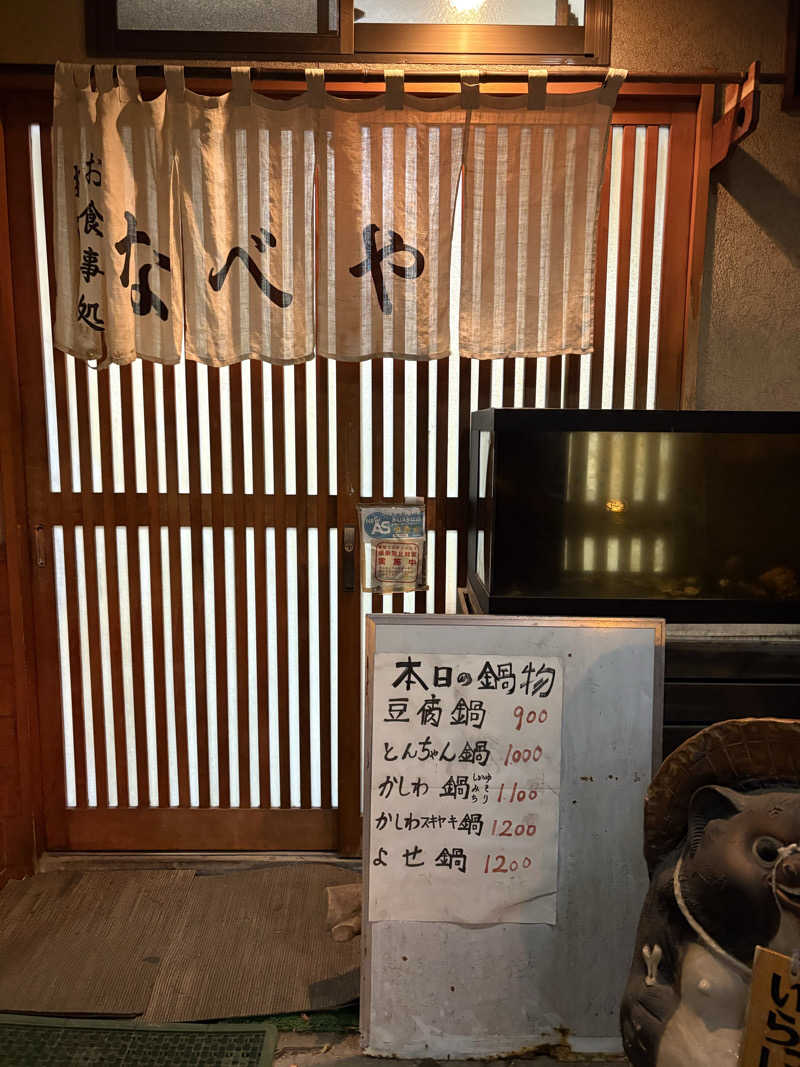 お食事処
なべや
AS
実施中
本日の鍋物
豆腐鍋 900
とんちゃん鍋 1000
かしわ 鍋 しょうゆ みそ 1100
かしわスキヤキ鍋 1200
よせ鍋 1200
いら